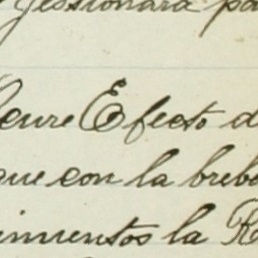 gestionara pa
Ocurre Efecto d
que con la breb
imientos la R